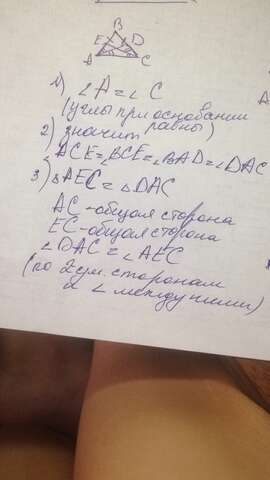 B
E D
A C
1) ∠A = ∠C
(углы при основании
равны)
2) значит
∠ACE=∠BCE=∠BAD=∠DAC
3) △AEC = △DAC
AC - общая сторона
EC - общая сторона
∠DAC = ∠AEC
(по 2ум. сторонам
и ∠ между ними)